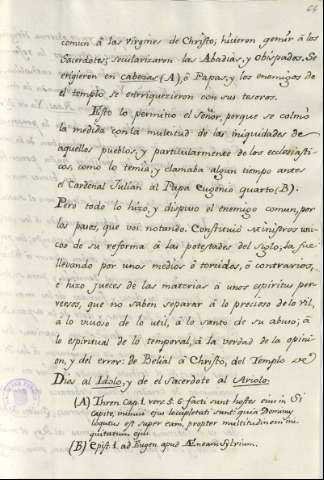 comun â las virgines de Christo; hicieron gemir â los
Sacerdotes; secularizaron las Abadias, y obispados. Se
erigieron en cabezas (A), ô Papas, y los enemigos de
el templo se enrriquezieron con sus tesoros.
Esto lo permitio el Señor, porque se colmò
la medida con la multitud de las iniquidades de
aquellos pueblos, y particularmente de los ecclesiast-
cos, como lo temia, y clamaba algun tiempo antes
el Cardenal Julian al Papa Eugenio quarto (B).
Pero todo lo hizo, y dispuso el enemigo comun, por
los pasos, que voi notando. Constituiò ministros uni-
cos de su reforma â las potestades del siglo, la fue
llevando por unos medios ô torcidos, ô contrarios,
e hizo jueces de las materias â unos espiritus per-
versos, que no saben separar â lo precioso de lo vil,
â lo vicioso de lo util, â lo santo de su abuso; â
lo espiritual de lo temporal, â la verdad de la opini-
on, y del error: de Belial â Christo, del Templo de
Dios al Idolo, y de el Sacerdote al Ariolo.
(A) Thren. Cap. 1. vers. 5. 6. facti sunt hostes eius in
capite, inimici ejus locupletati sunt: quia Dominus
loquutus est super eam, propter multitudinem ini-
quitatum ejus.
(B) Epist. 1. ad Eugen. apud Æneam Sylvium.